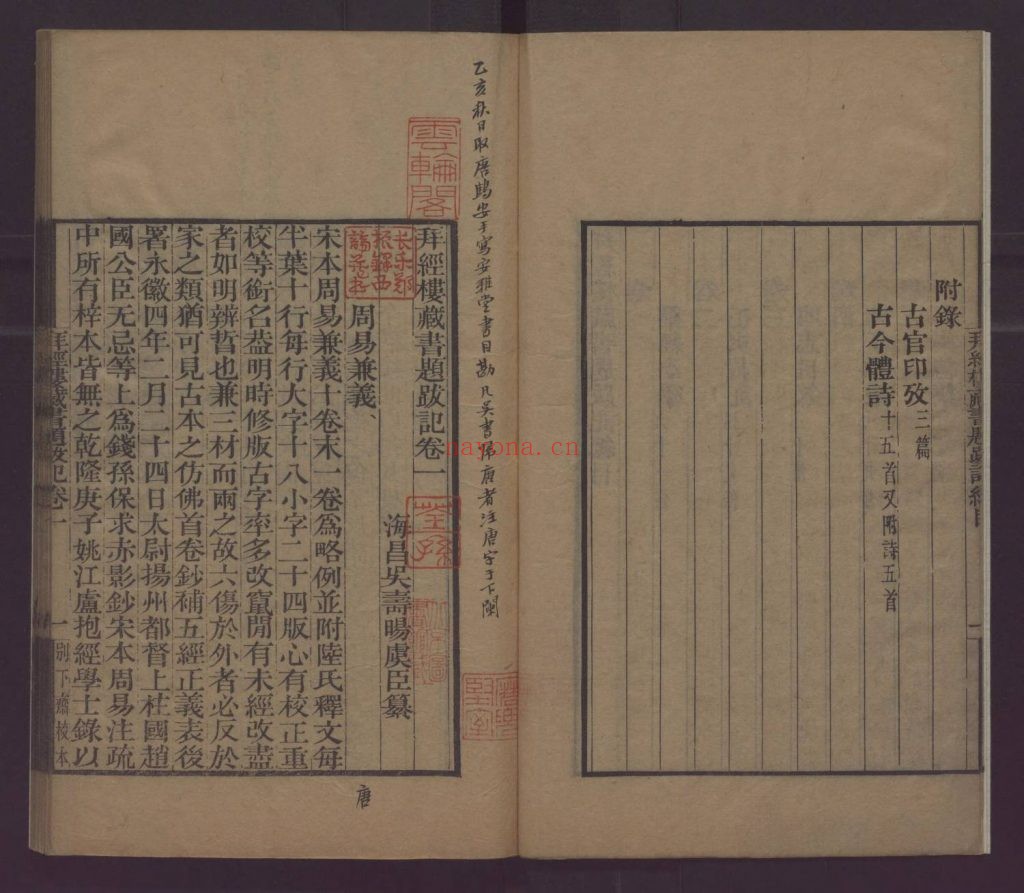 附錄
古官印攷三篇
古今體詩十五首又附詩五首
拜經樓藏書題跋記總目
二
乙亥秋日取唐鷦安手寫安雅堂書目勘凡吳書歸唐者注唐字于下闌
雲輪閣
荃孫
拜經樓藏書題跋記卷一
海昌吳壽暘虞臣纂
長樂鄭振鐸西諦藏書
周易兼義、
宋本周易兼義十卷末一卷為略例並附陸氏釋文每
半葉十行每行大字十八小字二十四版心有校正重
校等銜名葢明時修版古字率多改竄閒有未經改盡
者如明辨晢也兼三材而兩之故六傷於外者必反於
家之類猶可見古本之仿佛首卷鈔補五經正義表後
署永徽四年二月二十四日太尉揚州都督上柱國趙
國公臣无忌等上為錢孫保求赤影鈔宋本周易注疏
中所有梓本皆無之乾隆庚子姚江盧抱經學士錄以
拜經樓藏書題跋記卷一
一
別下齋校本
唐
nayona.cn